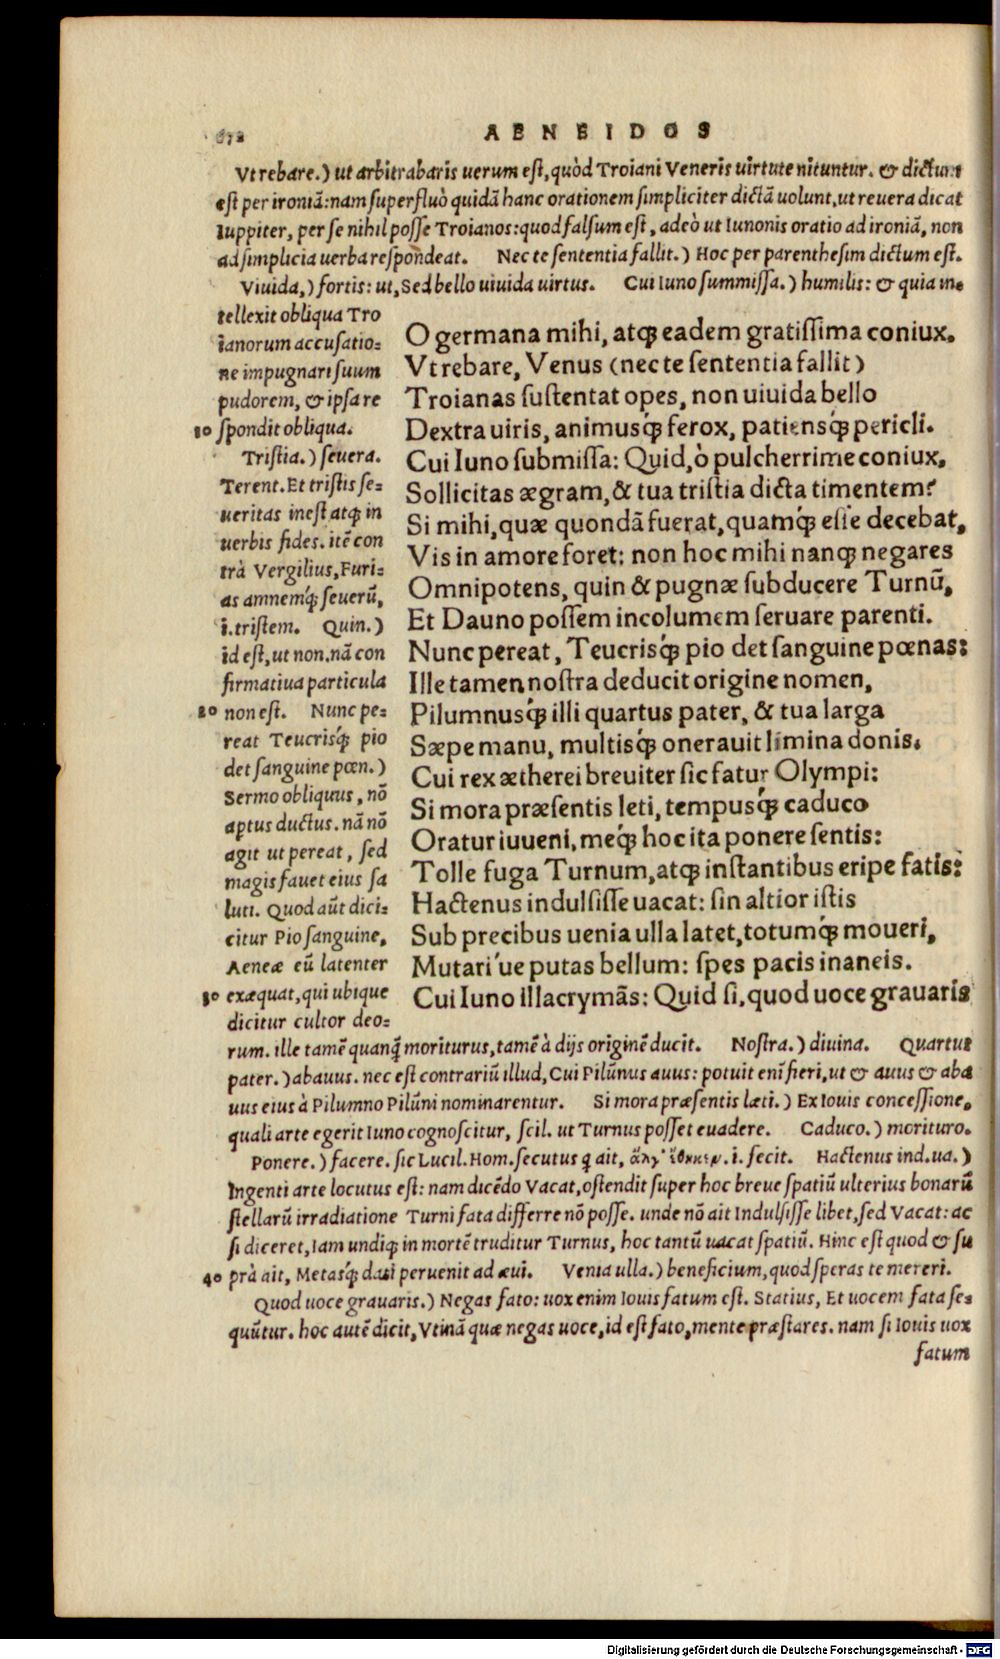 672
AENEIDOS
Vt rebare.) ut arbitrabaris uerum est, quòd Troiani Veneris uirtute nituntur. & dictum
est per ironiā: nam superfluò quidā hanc orationem simpliciter dictā uolunt, ut reuera dicat
Iuppiter, per se nihil posse Troianos: quod falsum est, adeò ut Iunonis oratio ad ironiā, non
ad simplicia uerba respondeat. Nec te sententia fallit.) Hoc per parenthesim dictum est.
Viuida,) fortis: ut, Sed bello uiuida uirtus. Cui Iuno summissa.) humilis: & quia in-
tellexit obliqua Tro
ianorum accusatio-
ne impugnari suum
pudorem, & ipsa re
10 spondit obliqua.
Tristia.) seuera.
Terent. Et tristis se-
ueritas inest atq; in
uerbis fides. itē con
trà Vergilius, Furi-
as amnemq́; seuerū,
i. tristem. Quin.)
id est, ut non. nā con
firmatiua particula
20 non est. Nunc pe-
reat Teucrisq́; pio
det sanguine pœn.)
Sermo obliquus, nō
aptus ductus. nā nō
agit ut pereat, sed
magis fauet eius sa
luti. Quod aūt dici-
citur Pio sanguine,
Aeneæ eū latenter
30 exæquat, qui ubique
dicitur cultor deo-
O germana mihi, atq; eadem gratissima coniux.
Vt rebare, Venus (nec te sententia fallit)
Troianas sustentat opes, non uiuida bello
Dextra uiris, animusq́; ferox, patiensq́; pericli.
Cui Iuno submissa: Quid, ò pulcherrime coniux,
Sollicitas ægram, & tua tristia dicta timentem?
Si mihi, quæ quondā fuerat, quamq́; esse decebat,
Vis in amore foret: non hoc mihi nanq; negares
Omnipotens, quin & pugnæ subducere Turnū,
Et Dauno possem incolumem seruare parenti.
Nunc pereat, Teucrisq́; pio det sanguine pœnas:
Ille tamen nostra deducit origine nomen,
Pilumnusq́; illi quartus pater, & tua larga
Sæpe manu, multisq́; onerauit limina donis.
Cui rex ætherei breuiter sic fatur Olympi:
Si mora præsentis leti, tempusq́; caduco
Oratur iuueni, meq́; hoc ita ponere sentis:
Tolle fuga Turnum, atq; instantibus eripe fatis:
Hactenus indulsisse uacat: sin altior istis
Sub precibus uenia ulla latet, totumq́; moueri,
Mutari'ue putas bellum: spes pacis inaneis.
Cui Iuno illacrymās: Quid si, quod uoce grauaris
rum. ille tamē quanq̄; moriturus, tamē à dijs originē ducit. Nostra.) diuina. Quartus
pater.) abauus. nec est contrariū illud, Cui Pilūnus auus: potuit enī fieri, ut & auus & aba
uus eius à Pilumno Pilūni nominarentur. Si mora præsentis læti.) Ex Iouis concessione,
quali arte egerit Iuno cognoscitur, scil. ut Turnus posset euadere. Caduco.) morituro.
Ponere.) facere. sic Lucil. Hom. secutus q ait, ἄλγ' ἔθηκεν. i. fecit. Hactenus ind. ua.)
Ingenti arte locutus est: nam dicēdo Vacat, ostendit super hoc breue spatiū ulterius bonarū
stellarū irradiatione Turni fata differre nō posse. unde nō ait Indulsisse libet, sed Vacat: ac
si diceret, Iam undiq; in mortē truditur Turnus, hoc tantū uacat spatiū. Hinc est quod & su
40 prà ait, Metasq́; dati peruenit ad æui. Venia ulla.) beneficium, quod speras te mereri.
Quod uoce grauaris.) Negas fato: uox enim Iouis fatum est. Statius, Et uocem fata se-
quūtur. hoc autē dicit, Vtinā quæ negas uoce, id est fato, mente præstares. nam si Iouis uox
fatum
Digitalisierung gefördert durch die Deutsche Forschungsgemeinschaft - DFG